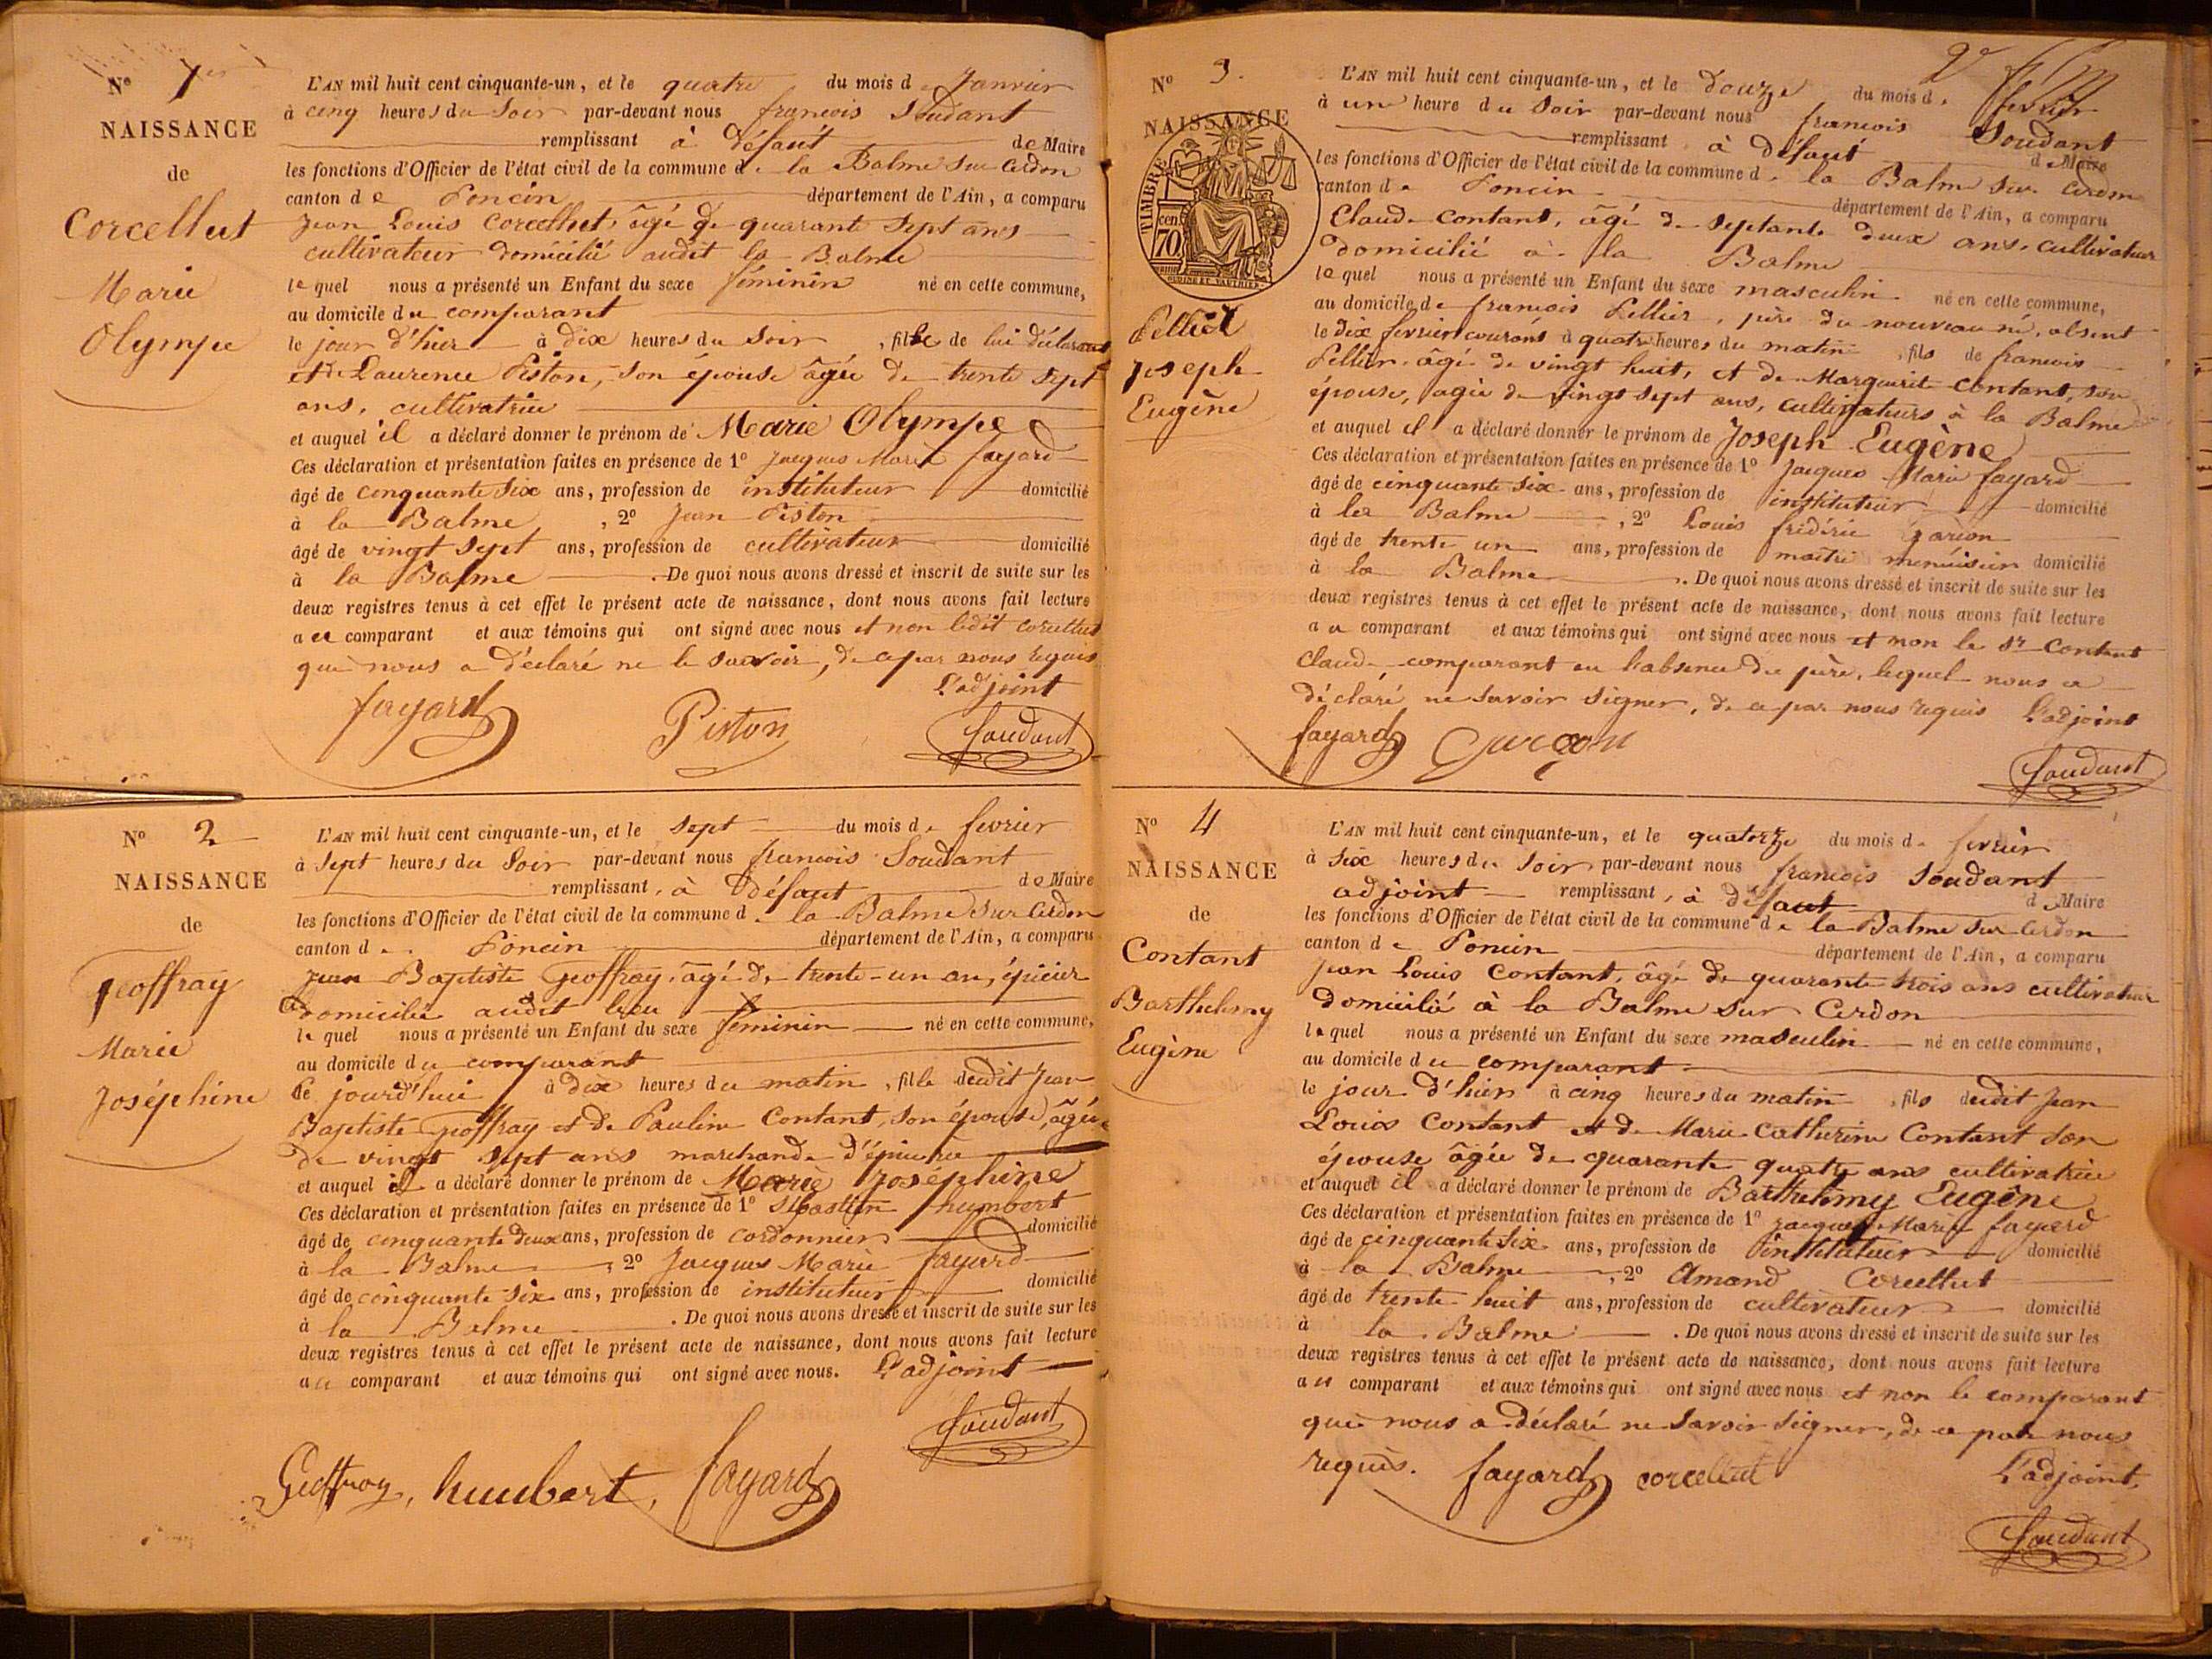 N° 1er
NAISSANCE
de
Corcellut
Marie
Olympe
L'AN mil huit cent cinquante-un, et le quatre du mois de Janvier
à cinq heures du Soir par-devant nous françois Soudant
remplissant à défaut de Maire
les fonctions d'Officier de l'état civil de la commune de la Balme sur Cerdon
canton de Poncin département de l'Ain, a comparu
Jean Louis Corcellut, âgé de quarante Sept ans
cultivateur domicilié audit la Balme
lequel nous a présenté un Enfant du sexe féminin né en cette commune,
au domicile du comparant
le jour d'hier à dix heures du Soir, fille de lui déclarant
et de Laurence Piston, son épouse âgée de trente sept
ans, cultivatrice
et auquel il a déclaré donner le prénom de Marie Olympe
Ces déclaration et présentation faites en présence de 1° Jacques Marie fayard
âgé de cinquante Six ans, profession de instituteur domicilié
à la Balme, 2° Jean Piston
âgé de vingt Sept ans, profession de cultivateur domicilié
à la Balme. De quoi nous avons dressé et inscrit de suite sur les
deux registres tenus à cet effet le présent acte de naissance, dont nous avons fait lecture
au comparant et aux témoins qui ont signé avec nous et non ledit corcellut
qui nous a déclaré ne le savoir, de ce par nous requis
L'adjoint
fayard Piston Soudant
N° 2
NAISSANCE
de
Geoffray
Marie
Joséphine
L'AN mil huit cent cinquante-un, et le Sept du mois de fevrier
à Sept heures du Soir par-devant nous françois Soudant
remplissant, à défaut de Maire
les fonctions d'Officier de l'état civil de la commune de la Balme sur Cerdon
canton de Poncin département de l'Ain, a comparu
Jean Baptiste Geoffray, âgé de trente-un an, épicier
domicilié audit lieu
lequel nous a présenté un Enfant du sexe féminin né en cette commune,
au domicile du comparant
le jourd'hui à dix heures du matin, fille dudit Jean
Baptiste Geoffray et de Pauline Contant, son épouse, âgée
de vingt sept ans marchande d'épicerie
et auquel il a déclaré donner le prénom de Marie Joséphine
Ces déclaration et présentation faites en présence de 1° Sébastien humbert
âgé de cinquante deux ans, profession de cordonnier domicilié
à la Balme, 2° Jacques Marie fayard
âgé de cinquante Six ans, profession de instituteur domicilié
à la Balme. De quoi nous avons dressé et inscrit de suite sur les
deux registres tenus à cet effet le présent acte de naissance, dont nous avons fait lecture
au comparant et aux témoins qui ont signé avec nous. L'adjoint
Soudant
Geoffray, humbert, fayard
N° 3.
NAISSANCE
TIMBRE
cen
70
Pellier
Joseph
Eugène
L'AN mil huit cent cinquante-un, et le douze du mois de fevrier
à une heure du Soir par-devant nous françois Soudant
remplissant à défaut de Maire
les fonctions d'Officier de l'état civil de la commune de la Balme sur Cerdon
canton de Poncin département de l'Ain, a comparu
Claude Contant, âgé de septante deux ans, cultivateur
domicilié à la Balme
lequel nous a présenté un Enfant du sexe masculin né en cette commune,
au domicile de françois Pellier, père du nouveau né, absent
le dix fevrier courant à quatre heures du matin, fils de françois
Pellier, âgé de vingt huit, et de Marguerite Contant, son
épouse, agée de vingt sept ans, cultivateurs à la Balme
et auquel il a déclaré donner le prénom de Joseph Eugène
Ces déclaration et présentation faites en présence de 1° Jacques Marie fayard
âgé de cinquante six ans, profession de instituteur domicilié
à la Balme, 2° Louis frédéric
âgé de trente un ans, profession de maître menuisier domicilié
à la Balme. De quoi nous avons dressé et inscrit de suite sur les
deux registres tenus à cet effet le présent acte de naissance, dont nous avons fait lecture
au comparant et aux témoins qui ont signé avec nous et non le Sr Contant
Claude comparant en l'absence du père, lequel nous a
déclaré ne savoir signer, de ce par nous requis L'adjoint
fayard
Soudant
N° 4
NAISSANCE
de
Contant
Barthelemy
Eugène
L'AN mil huit cent cinquante-un, et le quatorze du mois de fevrier
à Six heures du Soir par-devant nous françois Soudant
adjoint remplissant, à défaut de Maire
les fonctions d'Officier de l'état civil de la commune de la Balme sur Cerdon
canton de Poncin département de l'Ain, a comparu
Jean Louis Contant, âgé de quarante trois ans cultivateur
domicilié à la Balme sur Cerdon
lequel nous a présenté un Enfant du sexe masculin né en cette commune,
au domicile du comparant
le jour d'hier à cinq heures du matin, fils dudit Jean
Louis Contant et de Marie Catherine Contant son
épouse âgée de quarante quatre ans cultivatrice
et auquel il a déclaré donner le prénom de Barthelemy Eugène
Ces déclaration et présentation faites en présence de 1° Jacques Marie fayard
âgé de cinquante Six ans, profession de instituteur domicilié
à la Balme, 2° Amand Corcellut
âgé de trente huit ans, profession de cultivateur domicilié
à la Balme. De quoi nous avons dressé et inscrit de suite sur les
deux registres tenus à cet effet le présent acte de naissance, dont nous avons fait lecture
au comparant et aux témoins qui ont signé avec nous et non le comparant
qui nous a déclaré ne savoir signer, de ce par nous
requis. fayard corcellut L'adjoint,
Soudant